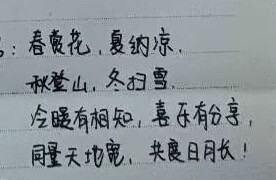 ：春赏花，夏纳凉，
秋登山，冬扫雪，
冷暖有相知，喜乐有分享，
同量天地宽，共度日月长！